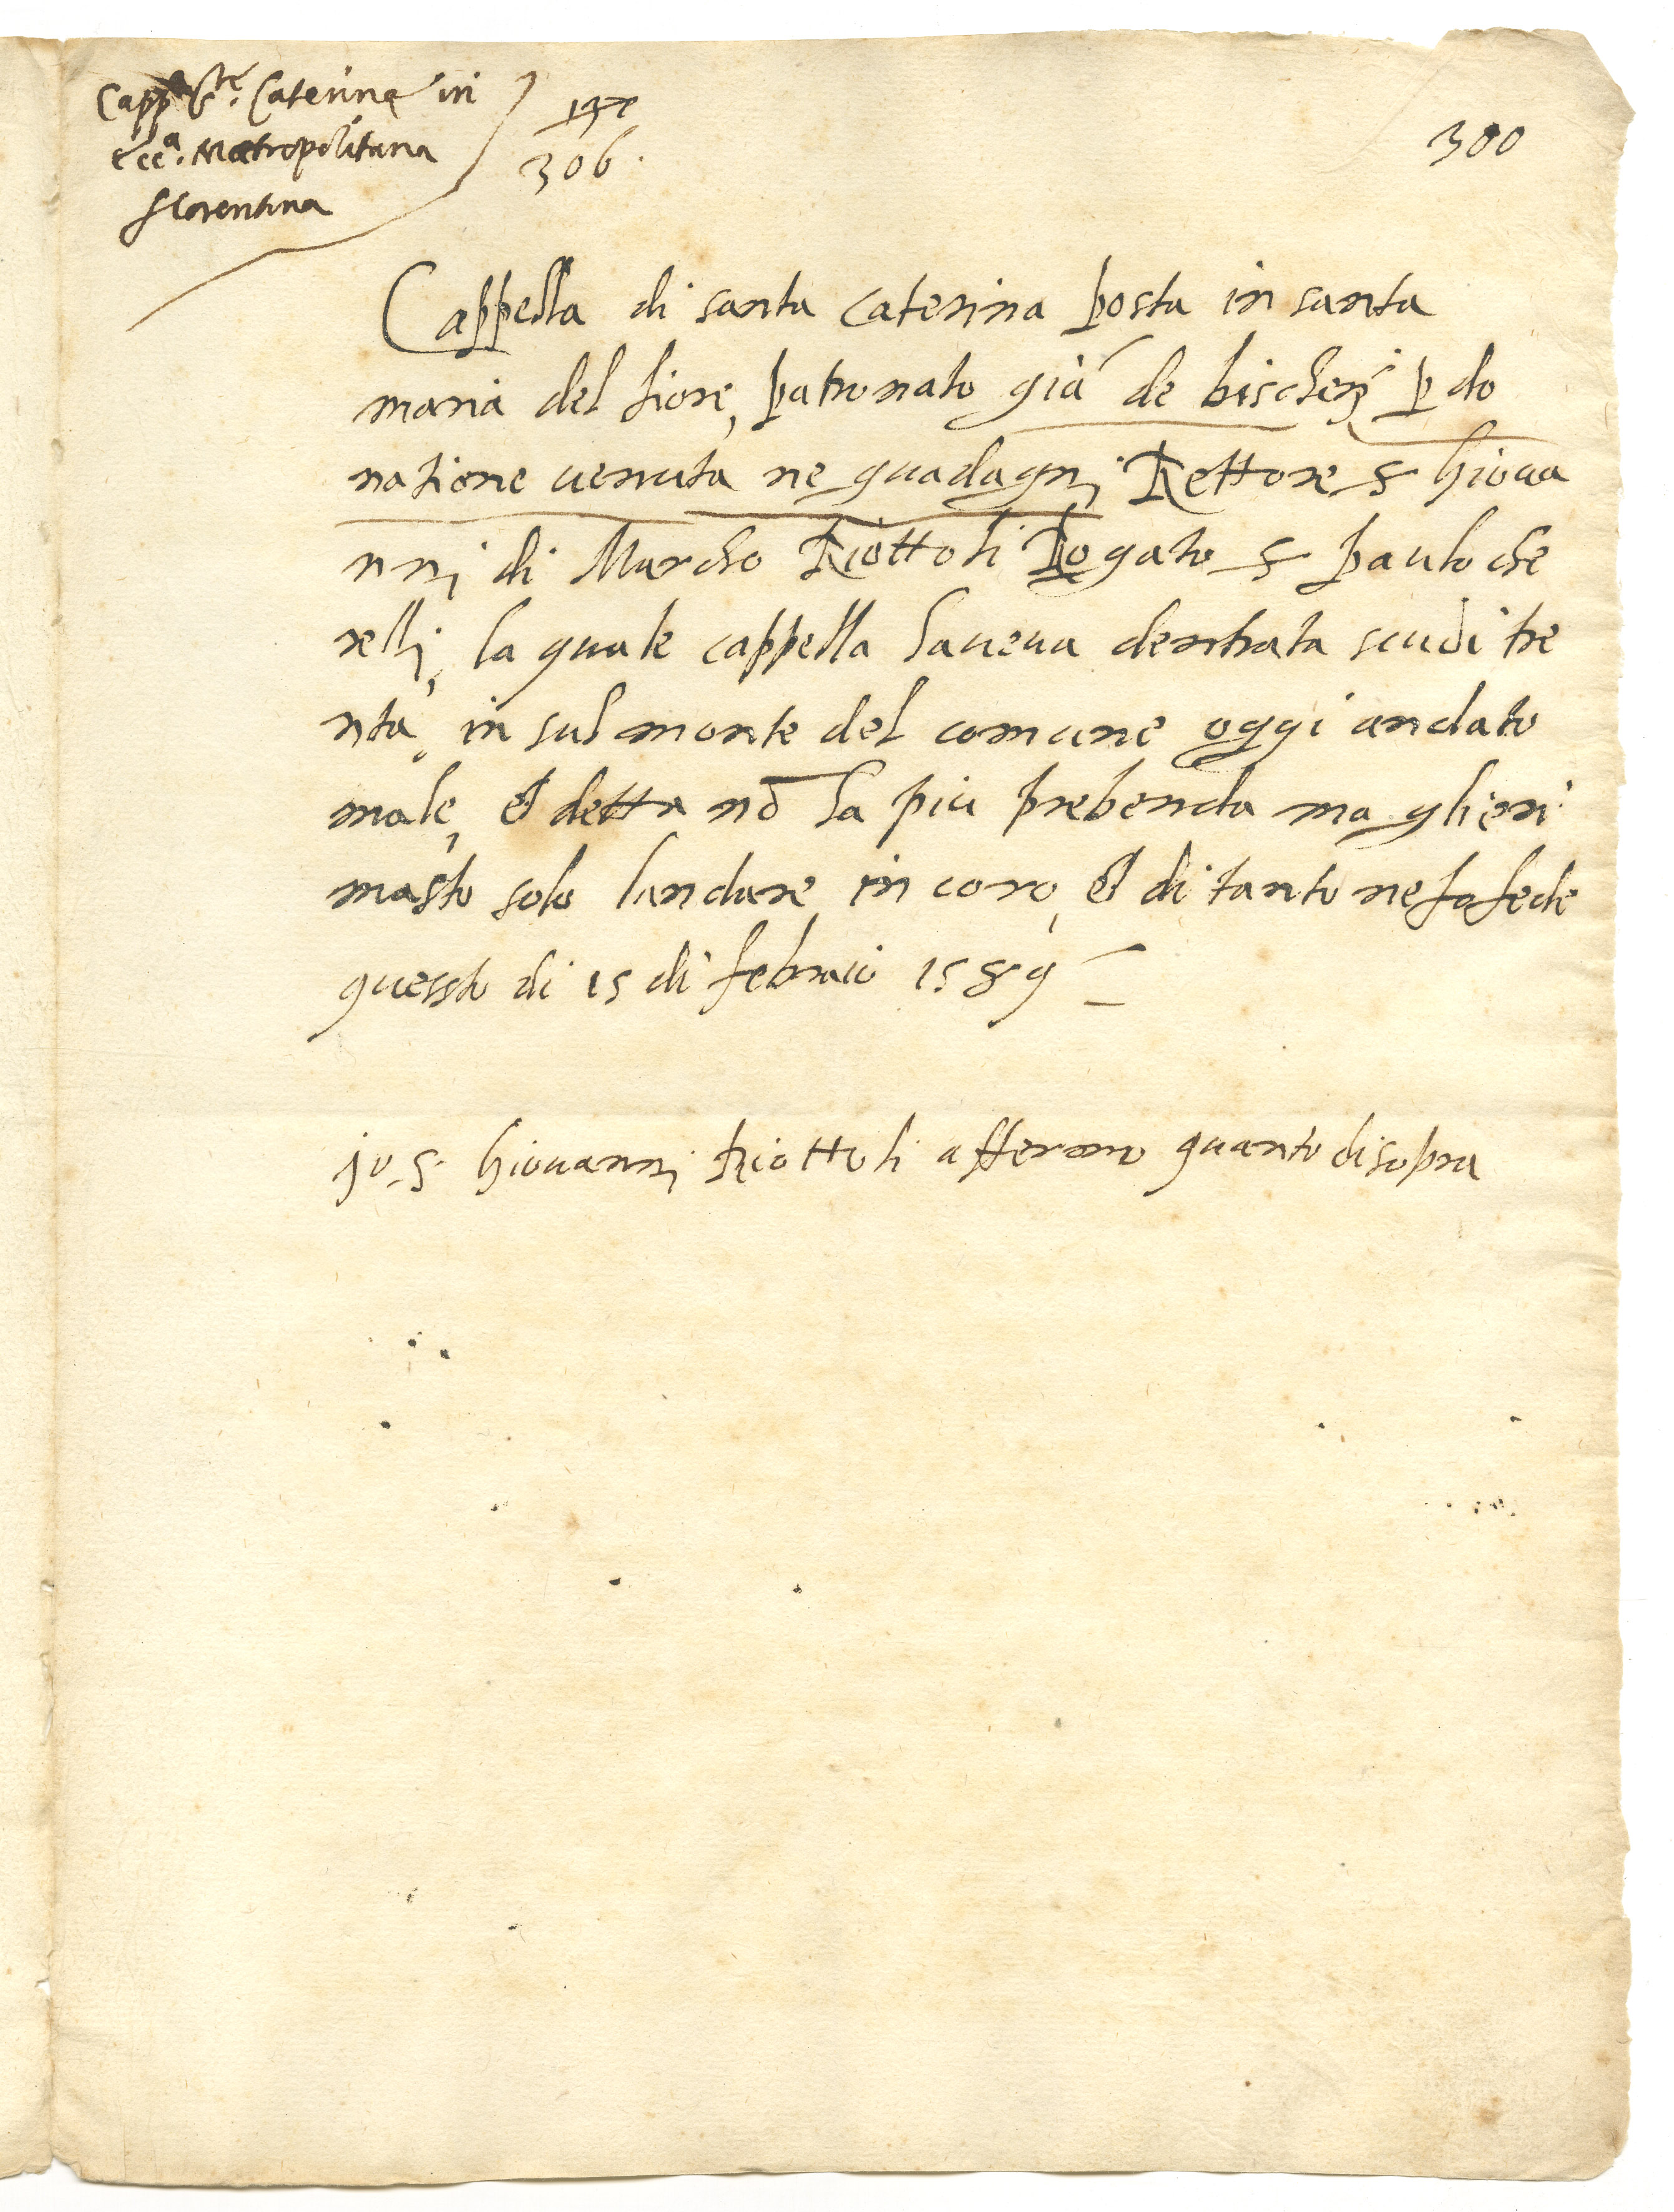 Capp.ª S.te Caterine in
ecc.ª Metropolitana
florentina
306.
300
Cappella di santa caterina posta in santa
maria del fiore, patronato già de bischeri p do
natione venuta ne guadagnj Rettore s hioua
nnj di Marcho Riottoli Rogato s paulo che
rellj, la quale cappella haueua dentrata scudi tre
nta, in sul monte del comune oggi andato
male, et detta nō ha piu prebenda ma glieri
masto solo landare in coro, et di tanto ne fo fede
quessto di 15 di febraio 1589
jo s. hiouannj Riottoli affermo quanto disopra